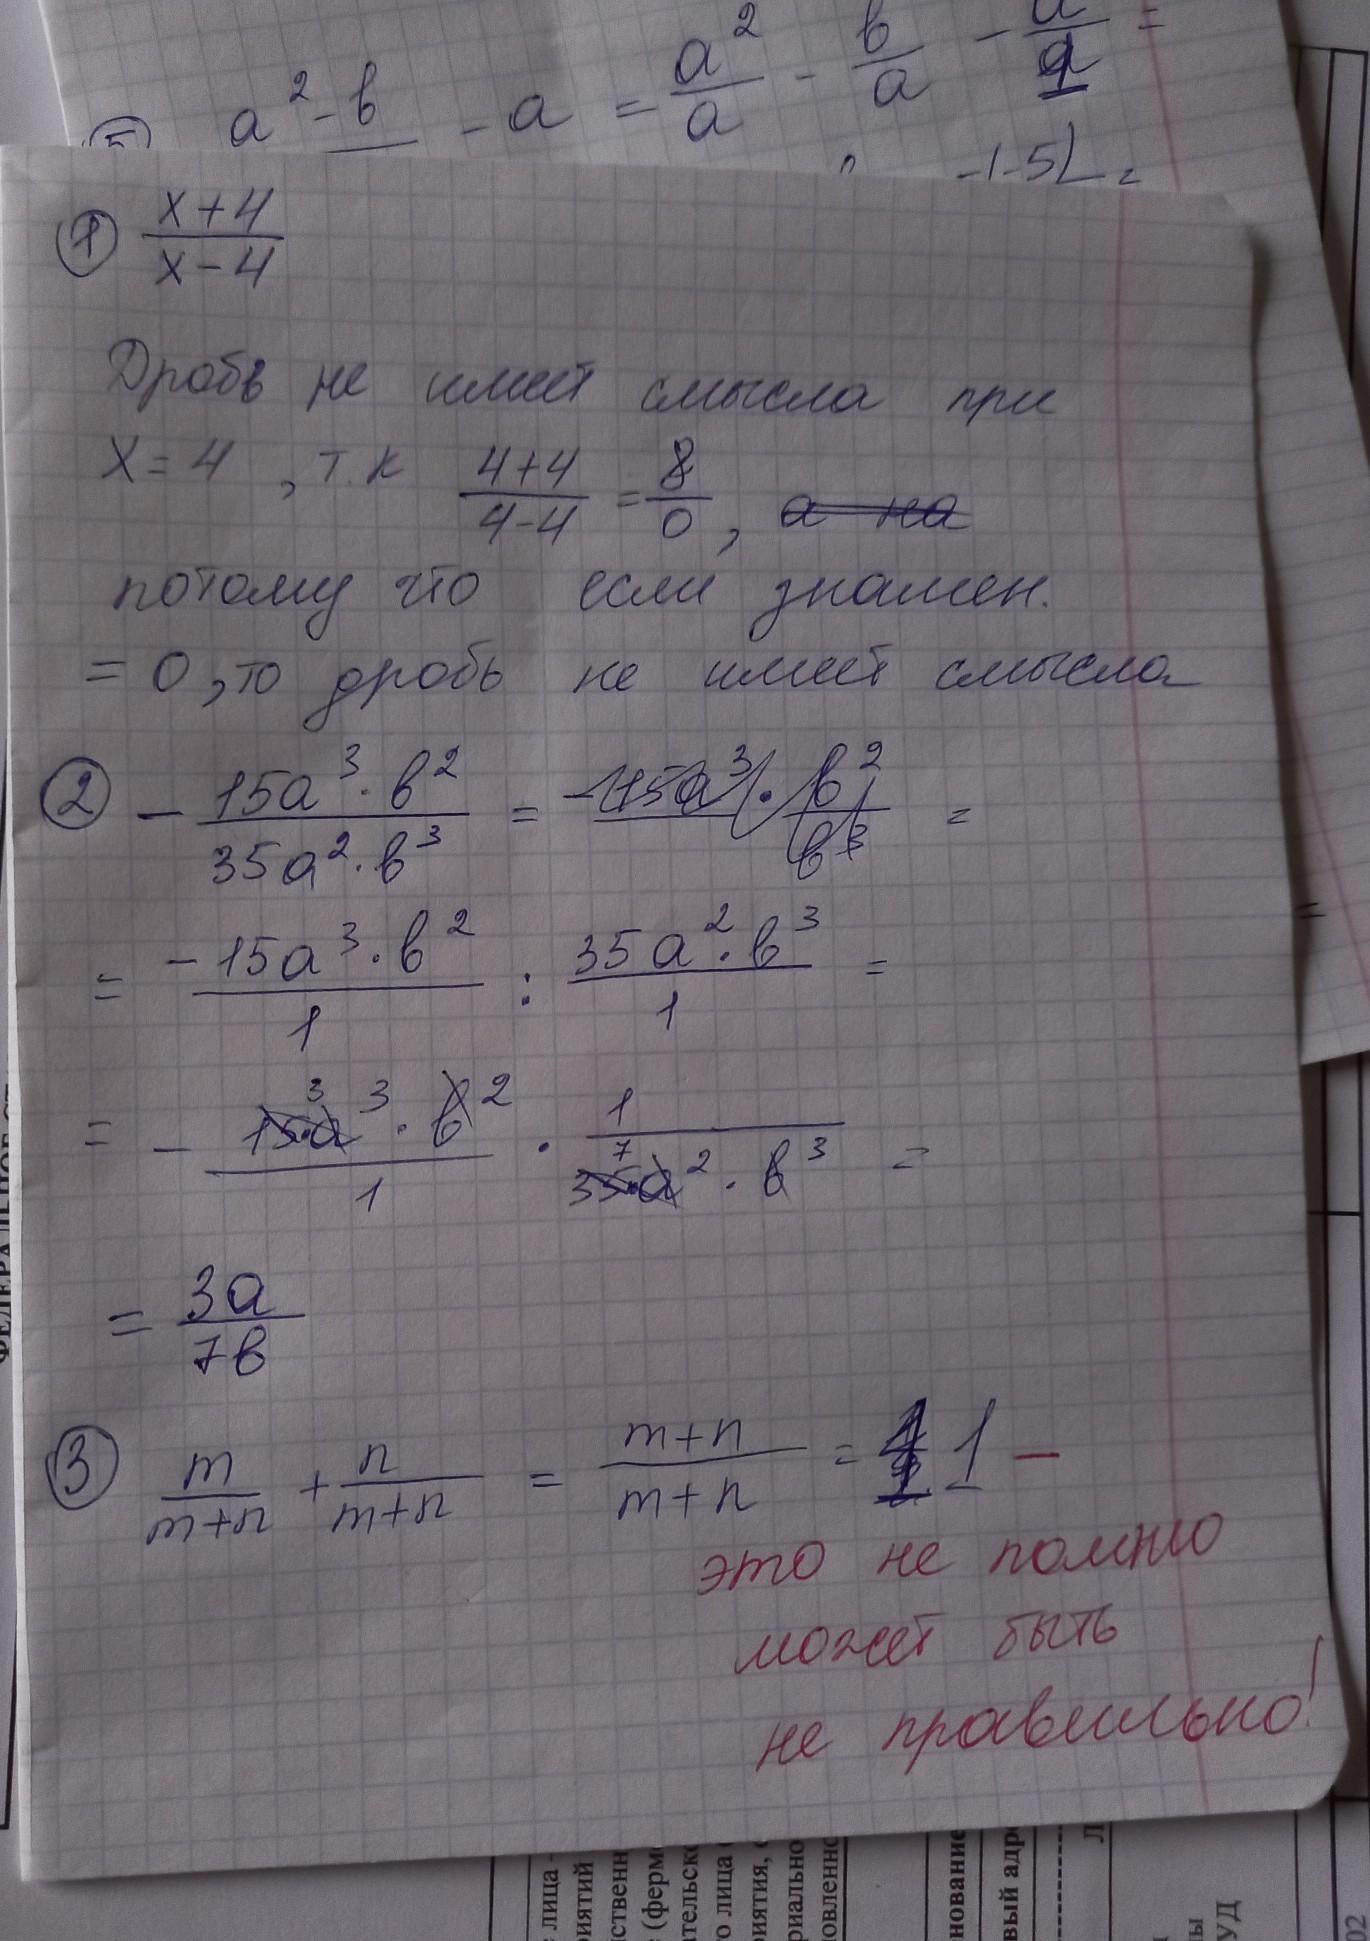 ⑤ a² - b / - a = a²/a - b/a - a/a =
① (x+4)/(x-4)
Дробь не имеет смысла при
x = 4 , т.к (4+4)/(4-4) = 8/0 , а на
потому что если знамен.
= 0, то дробь не имеет смысла
② - (15a³ · b²)/(35a² · b³) = -15a³ · b²/b³ =
= (-15a³ · b²)/1 : (35a² · b³)/1 =
= - (15a³ · b²)/1 · 1/(35a² · b³) =
3 7
= 3a/7b
③ m/(m+n) + n/(m+n) = (m+n)/(m+n) = 1 -
это не помню
может быть
не правильно!
е лица -
риятий
(ферм
го лица
риятия,
риально
новление
нование
вый адр
УД
02